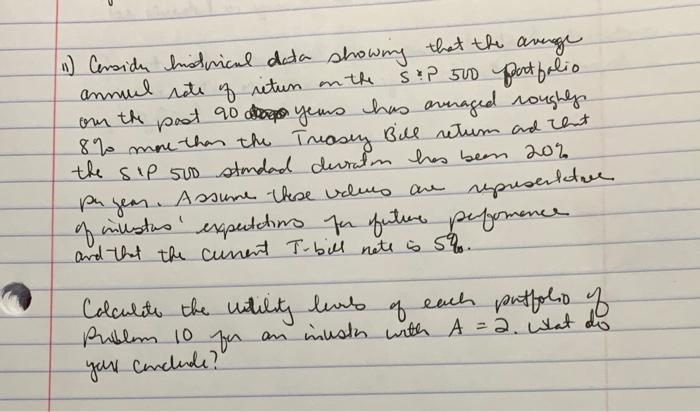 11) Consider historical data showing that the average
annual rate of return on the S&P 500 portfolio
over the past 90 years has averaged roughly
8% more than the Treasury Bill return and that
the S&P 500 standard deviation has been 20%
per year. Assume these values are representative
of investors' expectations for future performance
and that the current T-bill rate is 5%.
Calculate the utility levels of each portfolio of
Problem 10 for an investor with A = 2. What do
you conclude?